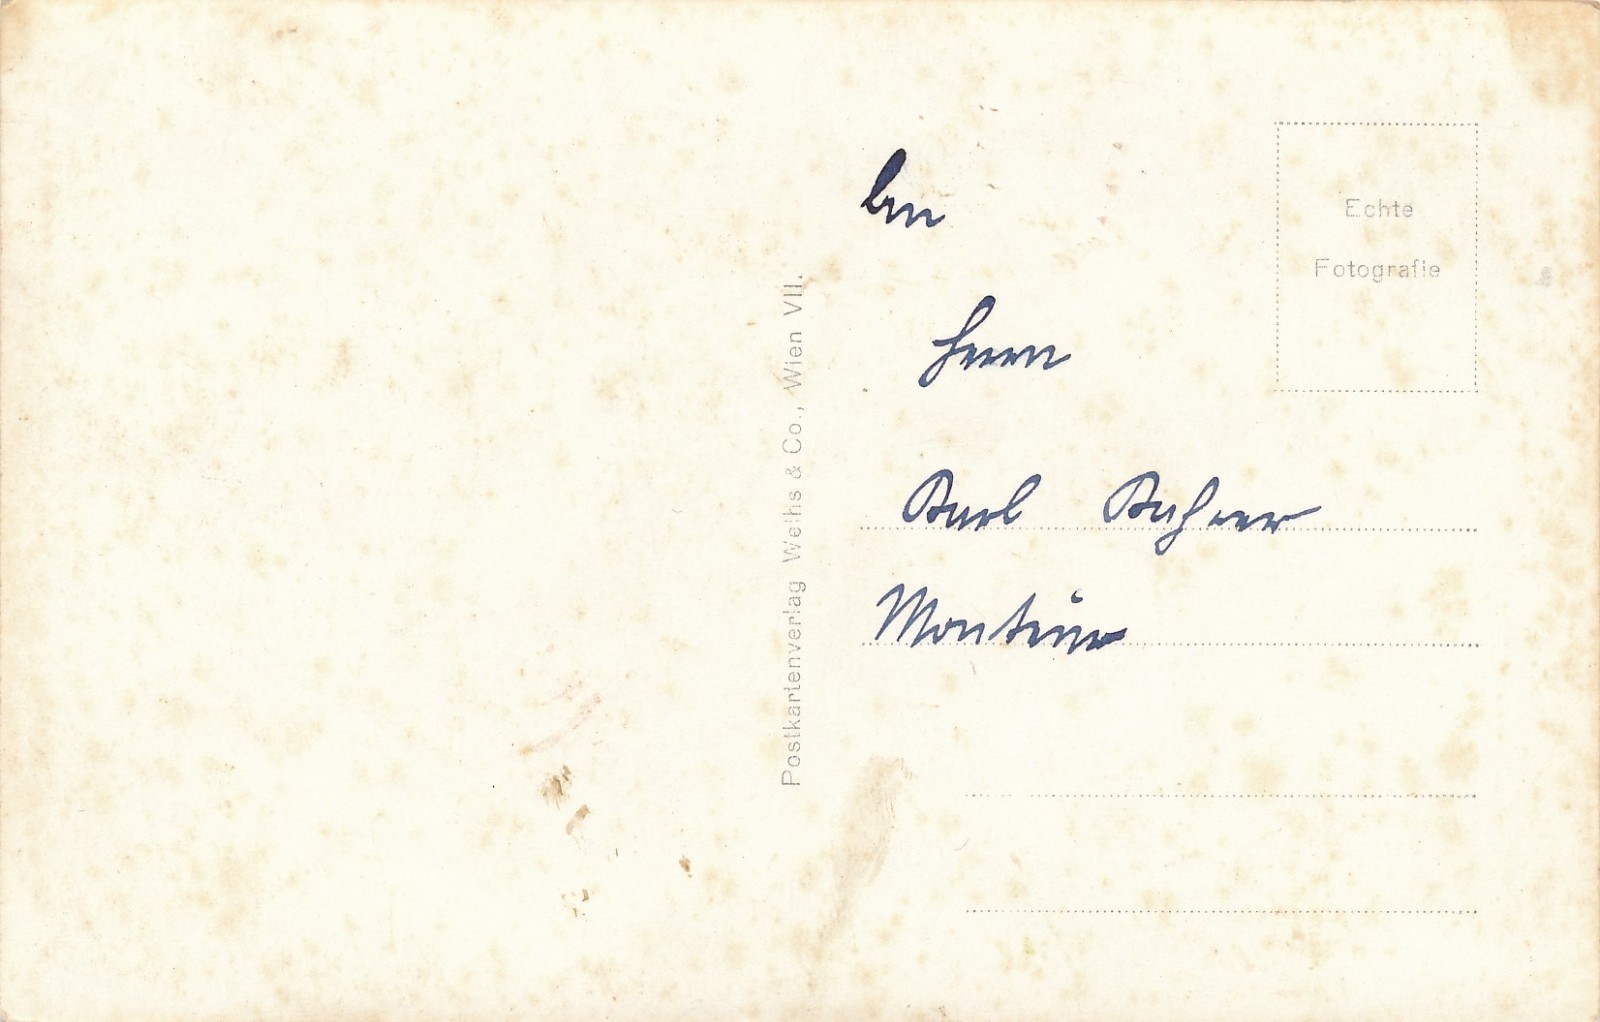 An
Herrn
Karl
Monteur
Echte
Fotografie
Postkartenverlag Weihs & Co., Wien VII.